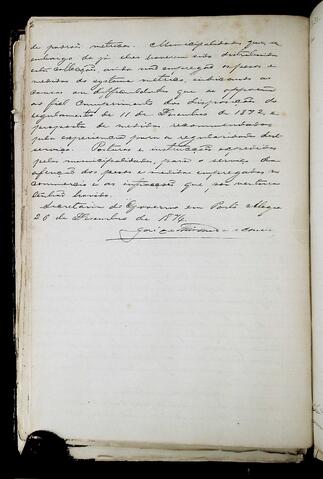 de padrões metricos. Municipalidades que, se
embargo de já lhes haverem sido distribuida
esta collecção, ainda não empregão os pesos e
medidas do systema metrico, indicando as
causas ou difficuldades que se oppoem
ao fiel cumprimento das disposições do
regulamento de 11 de Dezembro de 1872, e
proposta de medidas recommendadas
pela experiencia para a regularidade deste
serviço. Posturas e instrucções expedidas
pelas municipalidades, para o serviço da
aferição dos pesos e medidas empregados no
commercio e as infracções que se
tenhão havido.
Secretaria do Governo em Porto Alegre
20 de Dezembro de 1874.